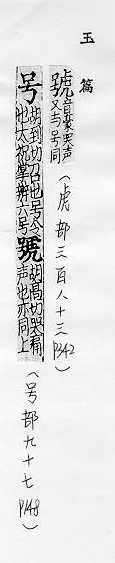 玉篇
號音豪哭声又与号同(虎部三百八十三 P342)
号胡到切召也号令也太祝掌辨六号號胡高切哭痛声也亦同上(号部九十七 P148)